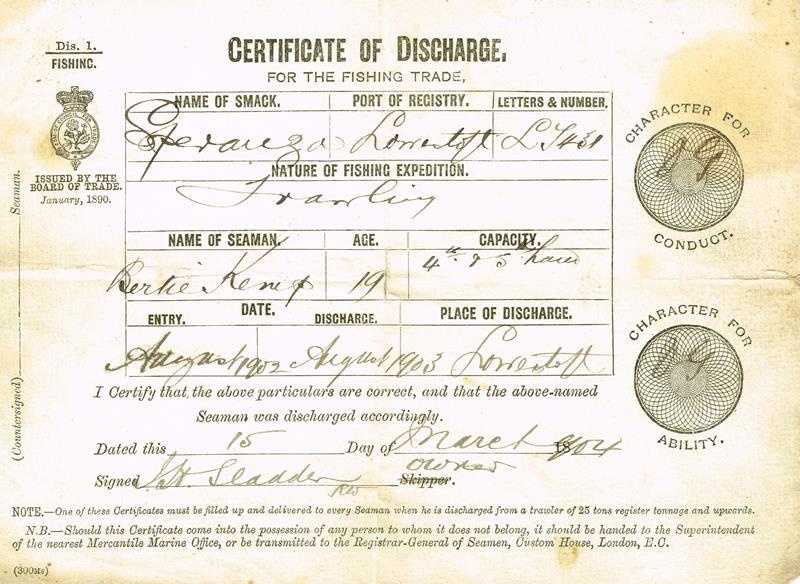 Dis. 1.
FISHING.
ISSUED BY THE
BOARD OF TRADE.
January, 1890.
Seaman.
(Countersigned)
CERTIFICATE OF DISCHARGE,
FOR THE FISHING TRADE,
NAME OF SMACK. PORT OF REGISTRY. LETTERS & NUMBER.
Esperanza Lowestoft LT 431
NATURE OF FISHING EXPEDITION.
Trawling
NAME OF SEAMAN. AGE. CAPACITY.
Bertie 19 4th & 5th hand
DATE. PLACE OF DISCHARGE.
ENTRY. DISCHARGE.
August 1902 August 1903 Lowestoft
I Certify that the above particulars are correct, and that the above-named
Seaman was discharged accordingly.
Dated this 15 Day of March 1904
Signed Sladden owner Skipper.
CHARACTER FOR
VG
CONDUCT.
CHARACTER FOR
VG
ABILITY.
NOTE.—One of these Certificates must be filled up and delivered to every Seaman when he is discharged from a trawler of 25 tons register tonnage and upwards.
N.B.—Should this Certificate come into the possession of any person to whom it does not belong, it should be handed to the Superintendent
of the nearest Mercantile Marine Office, or be transmitted to the Registrar-General of Seamen, Custom House, London, E.C.
(300Ms)